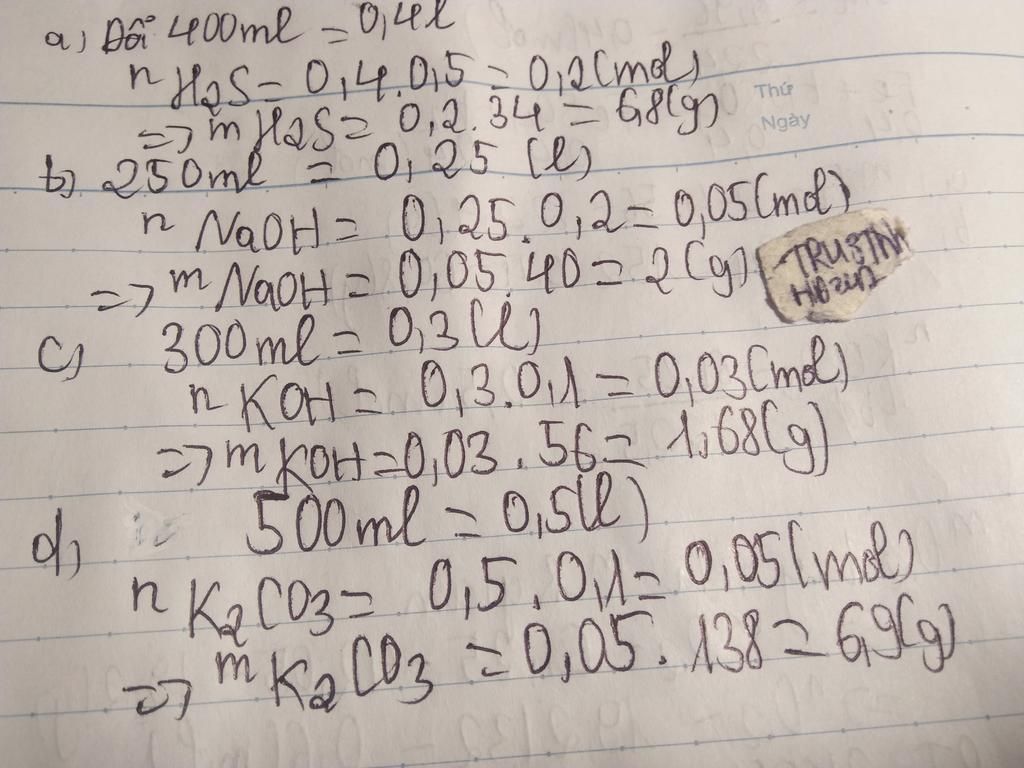 a, Đổi 400ml = 0,4l
n H2S = 0,4.0,5 = 0,2(mol)
=> m H2S = 0,2.34 = 6,8(g)
Thứ
Ngày
b, 250ml = 0,25 (l)
n NaOH = 0,25.0,2 = 0,05(mol)
=> m NaOH = 0,05.40 = 2(g)
c, 300ml = 0,3(l)
n KOH = 0,3.0,1 = 0,03(mol)
=> m KOH = 0,03.56 = 1,68(g)
d, 500ml = 0,5(l)
n K2CO3 = 0,5.0,1 = 0,05(mol)
=> m K2CO3 = 0,05.138 = 6,9(g)